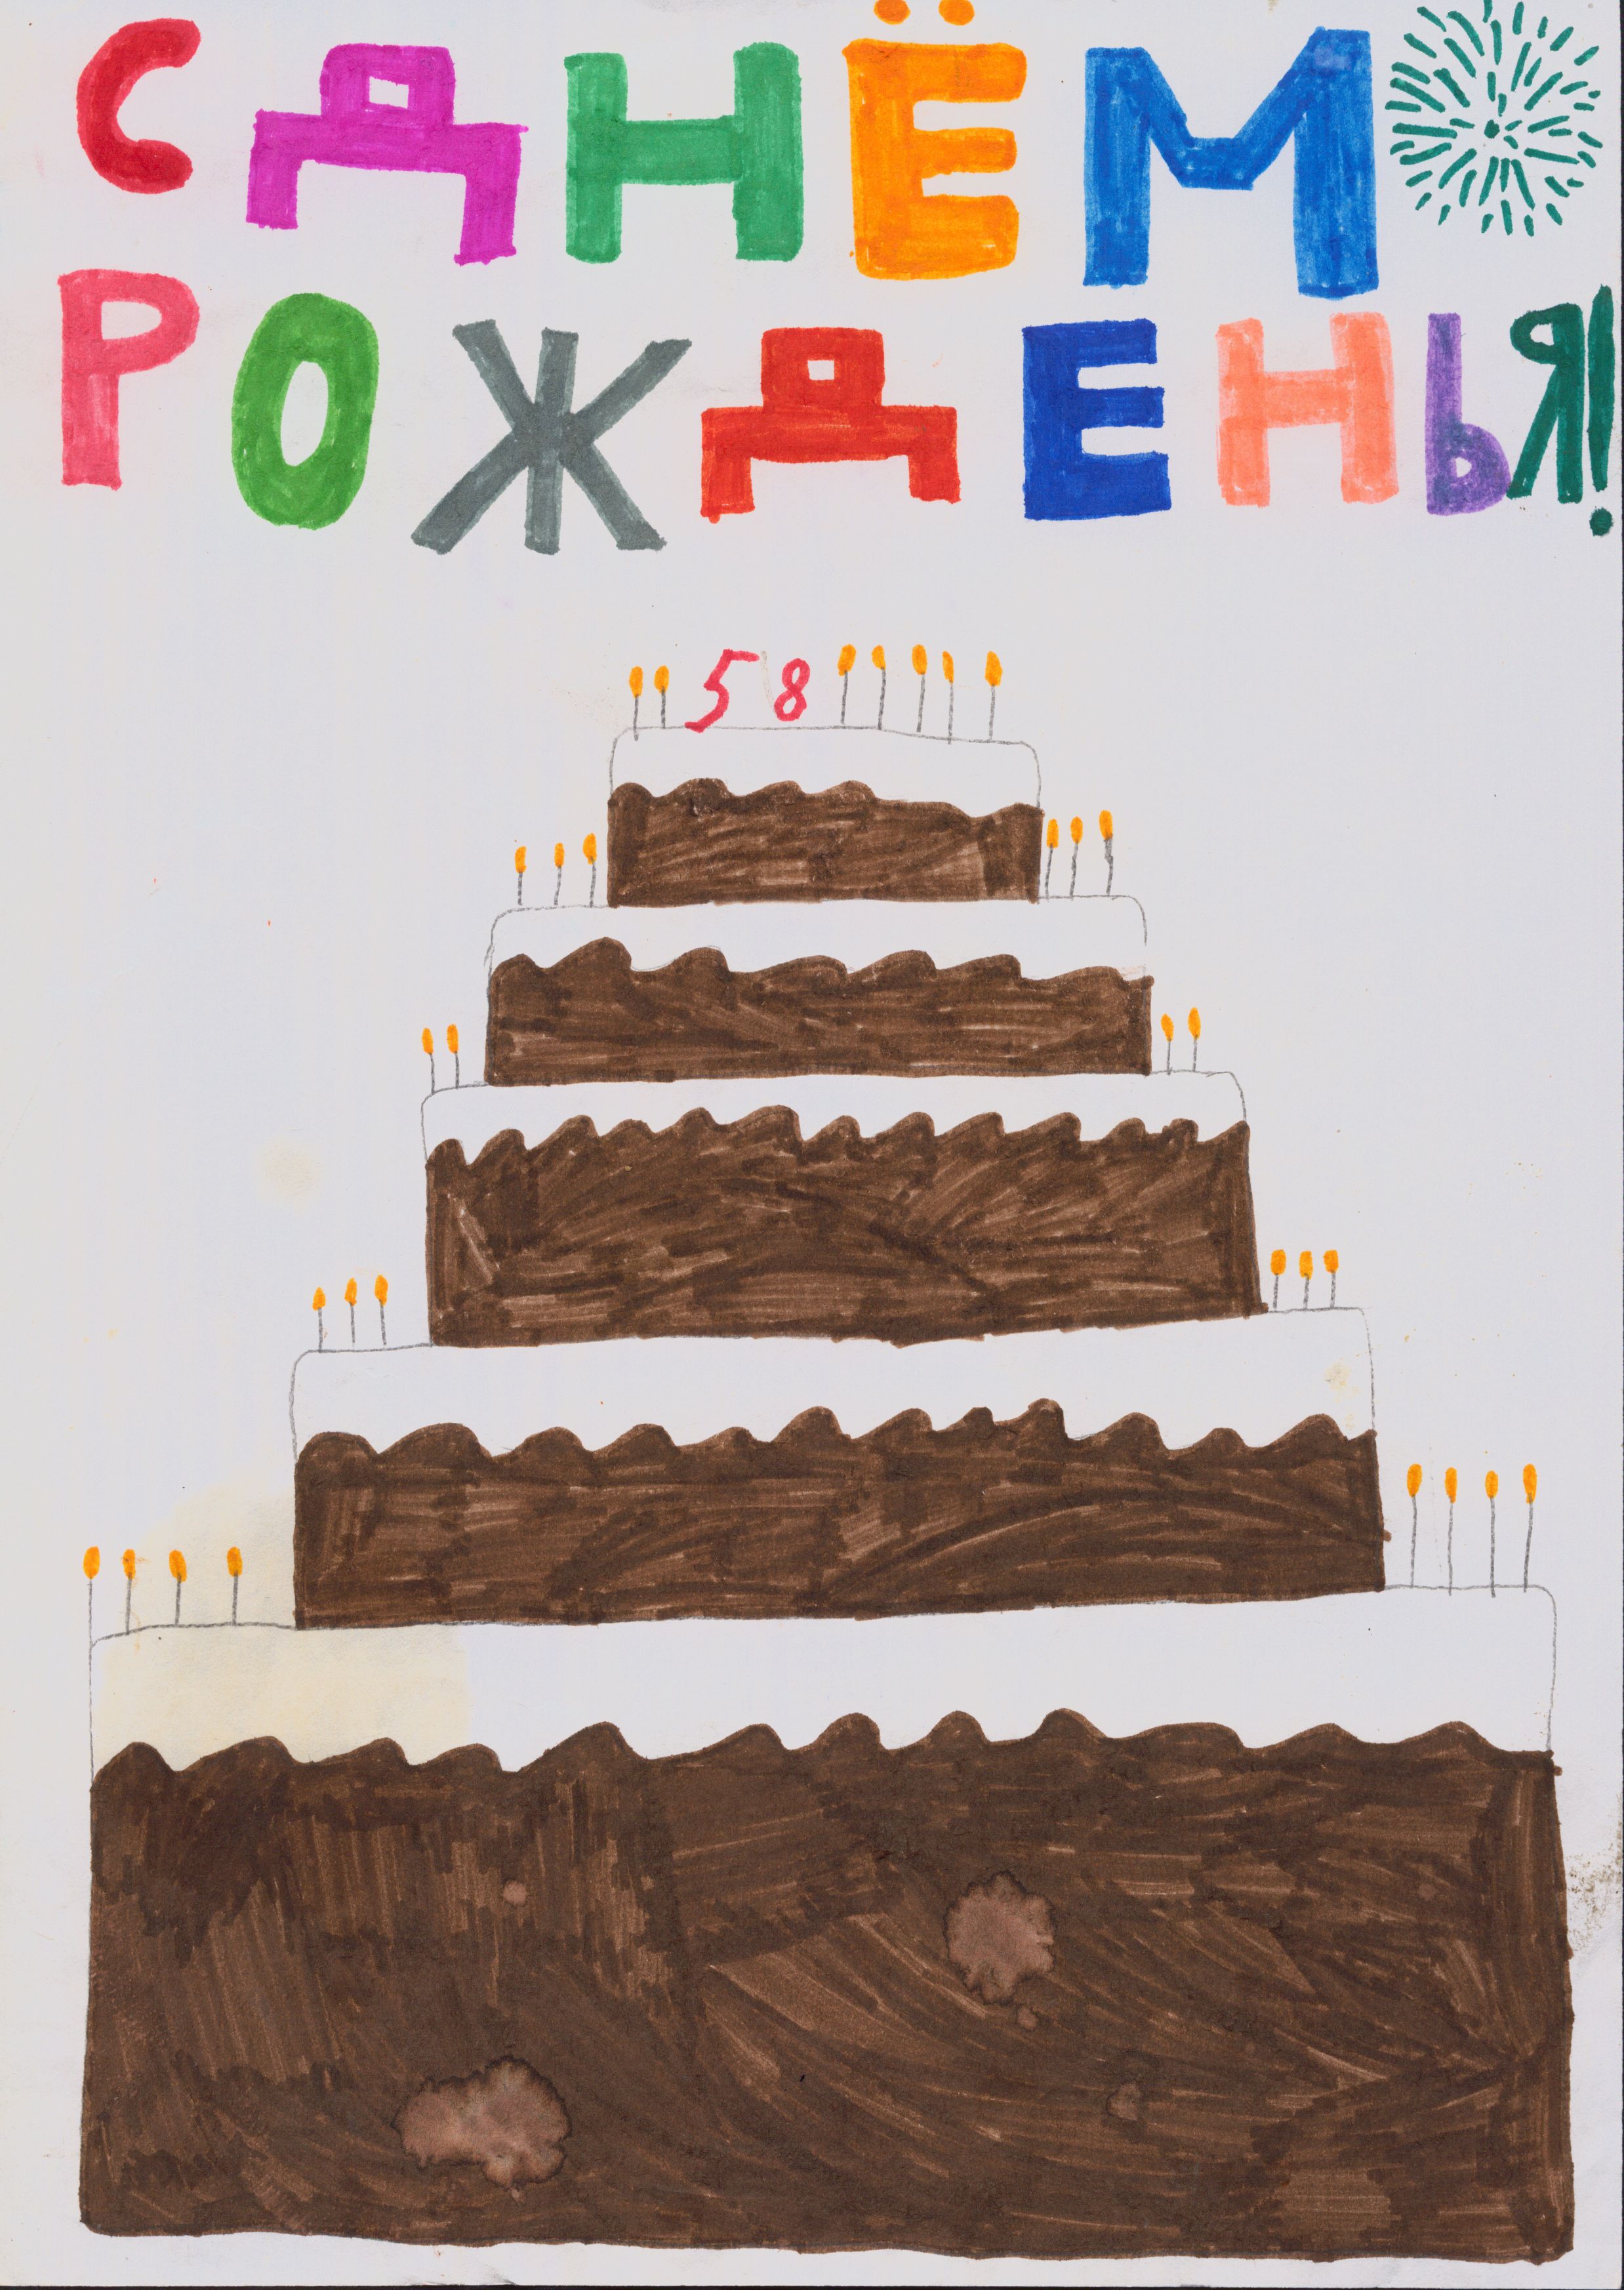 С ДНЁМ
РОЖДЕНЬЯ!
58